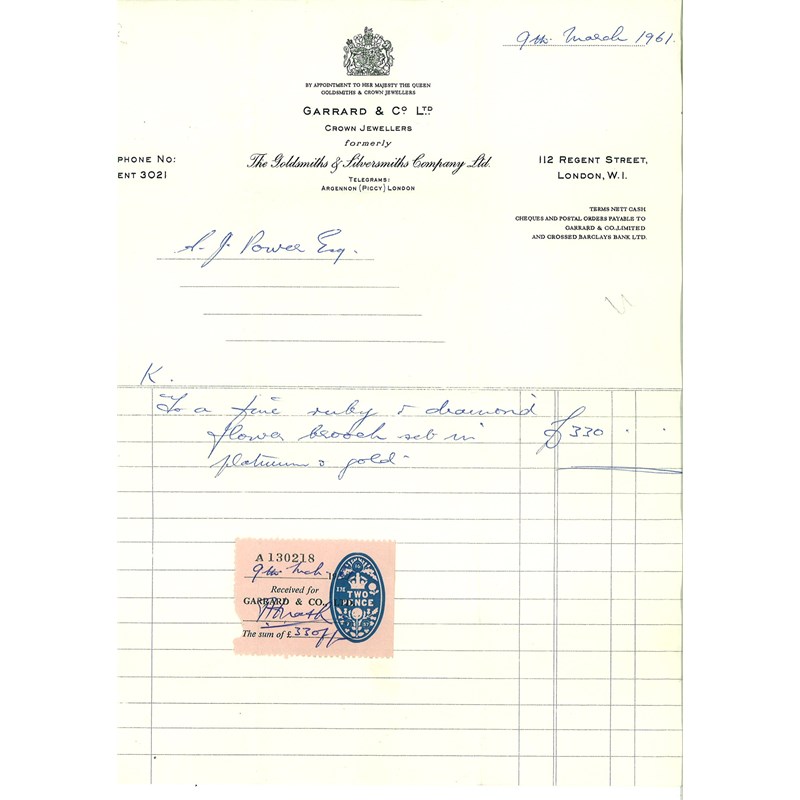 9th March 1961.
BY APPOINTMENT TO HER MAJESTY THE QUEEN
GOLDSMITHS & CROWN JEWELLERS
GARRARD & Co LTD
CROWN JEWELLERS
formerly
The Goldsmiths & Silversmiths Company Ltd.
TELEGRAMS:
ARGENNON (PICCY) LONDON
PHONE NO:
ENT 3021
112 REGENT STREET,
LONDON, W.1.
TERMS NETT CASH
CHEQUES AND POSTAL ORDERS PAYABLE TO
GARRARD & CO., LIMITED
AND CROSSED BARCLAYS BANK LTD.
A. J. Power Esq.
K.
To a fine ruby & diamond
flower brooch set in
platinum & gold
£330 . .
A 130218
9th Mch
Received for
GARRARD & CO.,
The sum of £ 330
TWO
PENCE